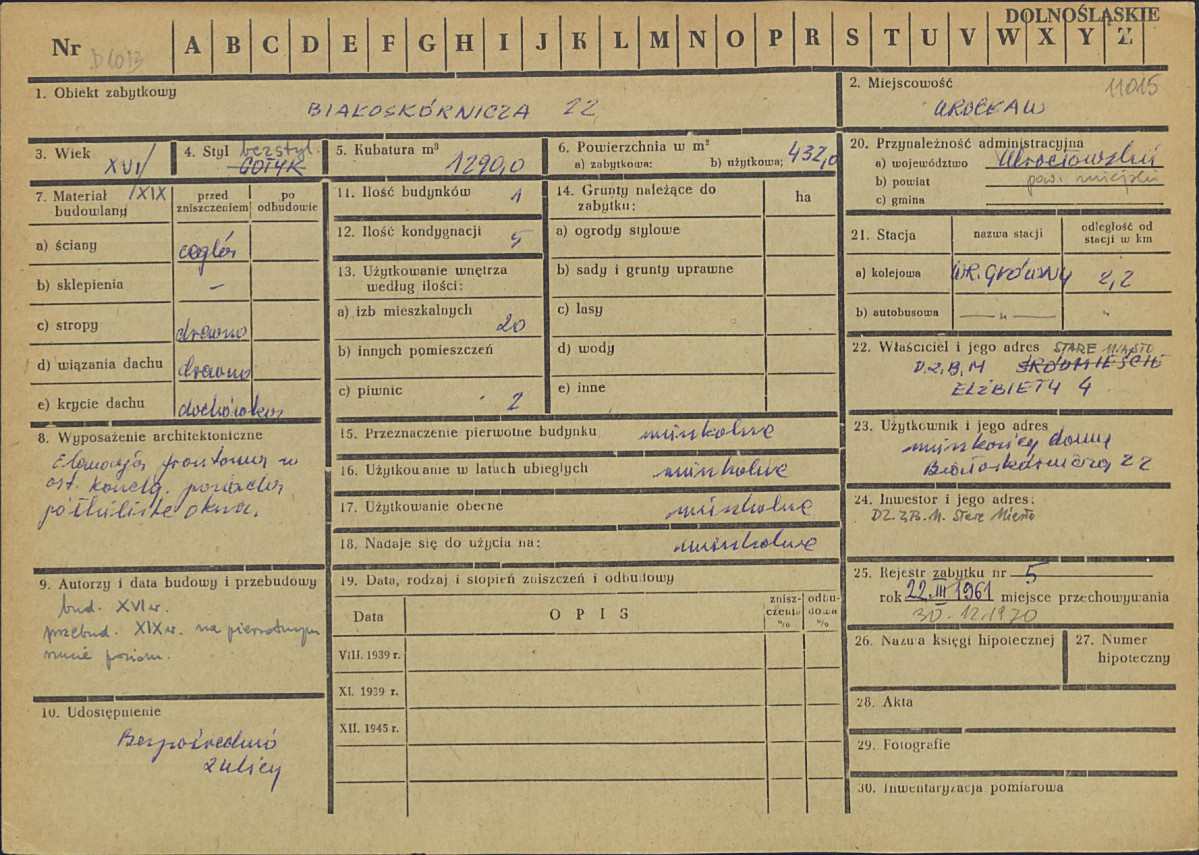 DOLNOŚLĄSKIE
Nr D1013 A B C D E F G H I J K L M N O P R S T U V W X Y Z
1. Obiekt zabytkowy
BIAŁOSKÓRNICZA 22
2. Miejscowość 11015
WROCŁAW
3. Wiek
XVI/XIX
4. Styl bezstyl.
GOTYK
5. Kubatura m³
1290,0
6. Powierzchnia w m²
a) zabytkowa: b) użytkowa; 432,0
7. Materiał budowlany
przed zniszczeniem
po odbudowie
a) ściany cegła
b) sklepienia –
c) stropy drewno
d) wiązania dachu drewno
e) krycie dachu dachówka
8. Wyposażenie architektoniczne
Elewacja frontowa w
ost. kondg. posiada
półkoliste okna.
9. Autorzy i data budowy i przebudowy
bud. XVI w.
przebud. XIX w. na pierwotnym
rzucie poziom.
10. Udostępnienie
Bezpośrednio
z ulicy
11. Ilość budynków 1
12. Ilość kondygnacji 5
13. Użytkowanie wnętrza
według ilości:
a) izb mieszkalnych
20
b) innych pomieszczeń
c) piwnic
2
14. Grunty należące do
zabytku:
ha
a) ogrody stylowe
b) sady i grunty uprawne
c) lasy
d) wody
e) inne
15. Przeznaczenie pierwotne budynku mieszkalne
16. Użytkowanie w latach ubiegłych mieszkalne
17. Użytkowanie obecne mieszkalne
18. Nadaje się do użycia na: mieszkalne
19. Data, rodzaj i stopień zniszczeń i odbudowy
Data
OPIS
znisz-
czenie
%
odbu-
dowa
%
VIII. 1939 r.
XI. 1939 r.
XII. 1945 r.
20. Przynależność administracyjna
a) województwo Wrocławskie
b) powiat pow. miejski
c) gmina
21. Stacja
nazwa stacji
odległość od
stacji w km
a) kolejowa WR. GŁÓWNY 2,2
b) autobusowa –"– "
22. Właściciel i jego adres STARE MIASTO
D.Z.B.M ŚRÓDMIEŚCIE
ELŻBIETY 4
23. Użytkownik i jego adres
mieszkańcy domu
Białoskórnicza 22
24. Inwestor i jego adres:
DZ.ZB.M. Stare Miasto
25. Rejestr zabytku nr 5
rok 22.III 1961 miejsce przechowywania
30.12.1970
26. Nazwa księgi hipotecznej
27. Numer
hipoteczny
28. Akta
29. Fotografie
30. Inwentaryzacja pomiarowa